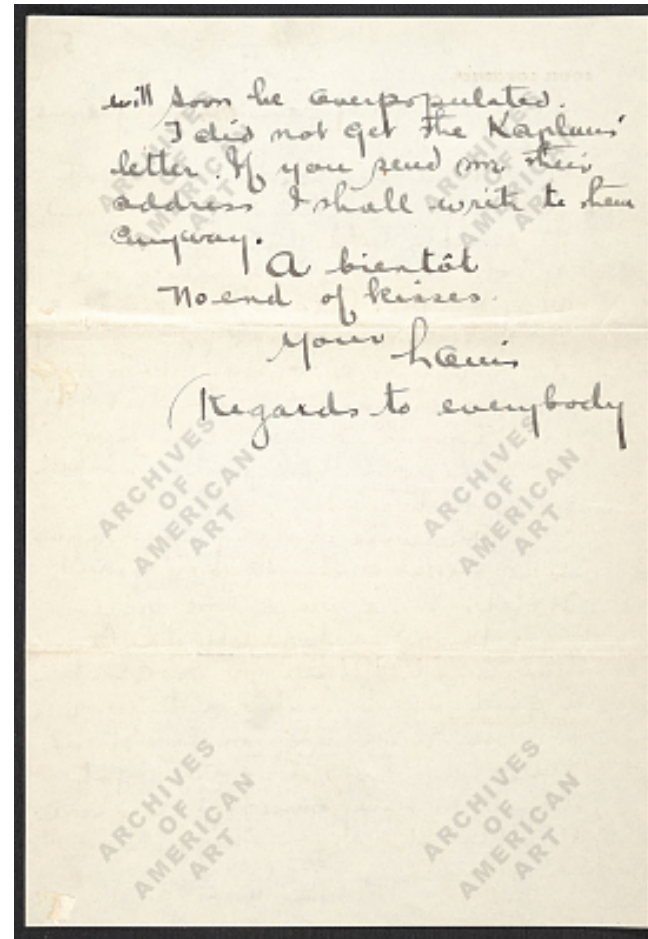 will soon be overpopulated.
I did not get the Kaplans'
letter. If you send me their
address I shall write to them
anyway.
A bientôt
No end of kisses.
Your Louis
(Regards to everybody
ARCHIVES
OF
AMERICAN
ART
ARCHIVES
OF
AMERICAN
ART
ARCHIVES
OF
AMERICAN
ART
ARCHIVES
OF
AMERICAN
ART
ARCHIVES
OF
AMERICAN
ART
ARCHIVES
OF
AMERICAN
ART